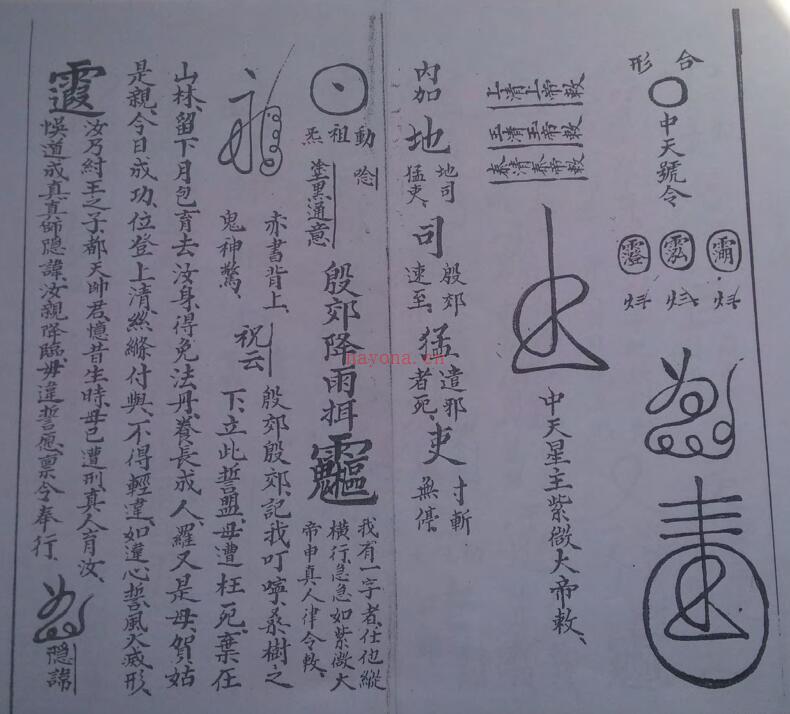 合形
中天號令
上清上帝敕
玉清玉帝敕
泰清泰帝敕
中天星主紫微大帝敕、
內加
地 地司猛吏、
司 殷郊速至、
猛 遣邪者死、
吏 寸斬無停、
動祖炁
唸
塗黑通意、
殷郊降雨
我有一字者、任他縱橫行、急急如紫微大帝申真人律令敕、
赤書背上、鬼神驚、
祝云
殷郊殷郊、記我叮嚀、桑樹之下、立此誓盟、母遭枉死、棄在
山林、留下月包、育去汝身、得免法丹、養長成人、羅叉是母、賀姑
是親、今日成功、位登上清、絲絛付與、不得輕違、如違心誓、風火滅形、
汝乃紂王之子、都天帥君、憶昔生時、母已遭刑、真人育汝、
悞道成真、真師隱諱、汝親降臨、毋違誓愿、禀令奉行、
隱諱
nayona.cn